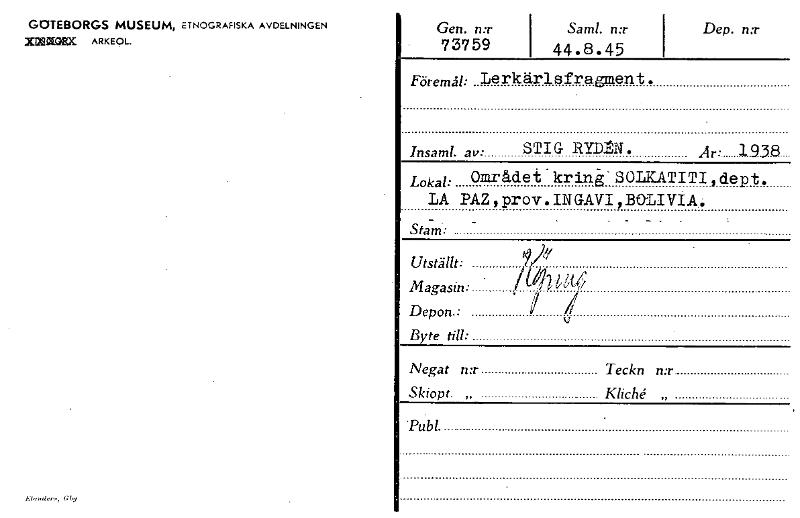 GÖTEBORGS MUSEUM, ETNOGRAFISKA AVDELNINGEN
ARKEOL.
Gen. n:r Saml. n:r Dep. n:r
73759 44.8.45
Föremål: Lerkärlsfragment.
Insaml. av: STIG RYDÉN. År: 1938
Lokal: Området kring SOLKATITI,dept.
LA PAZ,prov.INGAVI,BOLIVIA.
Stam:
Utställt:
Magasin:
Depon.:
Byte till:
Negat n:r Teckn n:r
Skiopt. „ Kliché „
Publ.
Elanders, Gbg